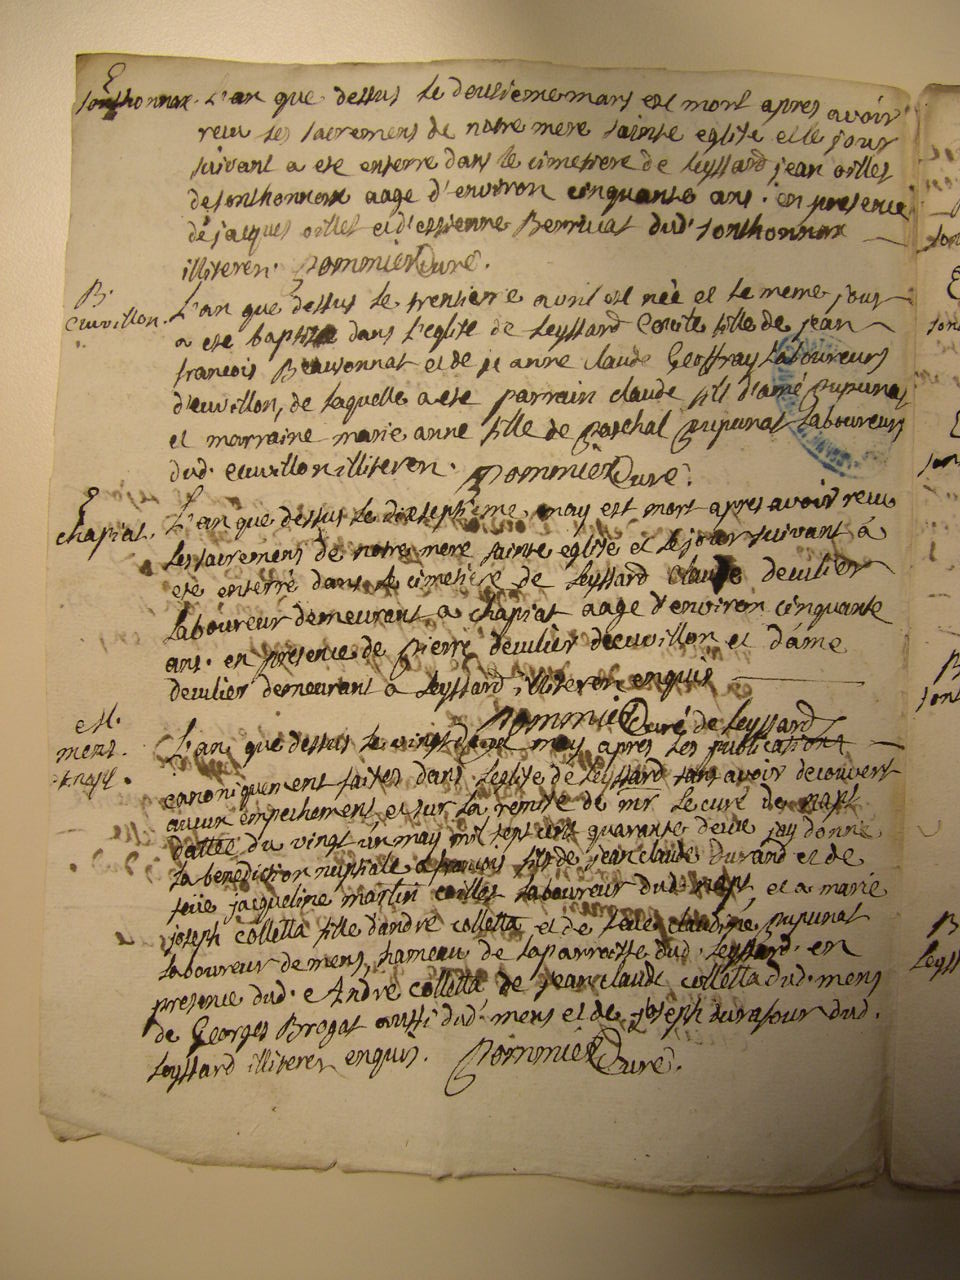 E
sonthonnax. L'an que dessus le deusieme mars est mort apres avoir
receu les sacremens de notre mere sainte eglise et le jour
suivant a ete enterré dans le cimetiere de leyssard jean oillet
de sonthonnax aagé d'environ cinquante ans. en presence
de jacques oillet et d'estienne Berruiat dud' sonthonnax
illiterez. Pommier Curé.
B.
Euvillon. L'an que dessus le trentieme avril est née et le meme jour
a eté baptisée dans l'eglise de leyssard fille de jean
francois et de jeanne claude Geoffray laboureurs
d'euvillon, de laquelle a eté parrain claude fils d'amé pupunat
et marraine marie anne fille de paschal pupunat laboureurs
dud. euvillon illiterez. Pommier Curé.
E
chapiat. L'an que dessus le dixseptieme may est mort apres avoir receu
les sacremens de notre mere sainte eglise et le jour suivant à
eté enterré dans le cimetiere de leyssard claude deculier
laboureur demeurant a chapiat aagé d'environ cinquante
ans. en presence de pierre deculier deeuvillon et d'ame
deculier demeurant a leyssard illiterez enquis
Pommier Curé de leyssard
M.
mens.
L'an que dessus le vingt may apres les publications
canoniquement faites dans l'eglise de leyssard sans avoir decouvert
aucun empechement et sur la remise de mr le curé de napt
dattée du vingt un may mil sept cent quarante deux jay donné
la benediction nuptialle a francois fils de jean claude durand et de
feüe jacqueline martin laboureur dud. napt et a marie
joseph colletta fille d'andré colletta et de feue claudine pupunat
laboureur de mens, hameau de la parroisse dud. leyssard. en
presence dud. André colletta de jean claude colletta dud. mens
de Georges Brogat aussi dud. mens et de joseph durafour dud.
leyssard illiterez enquis. Pommier Curé.